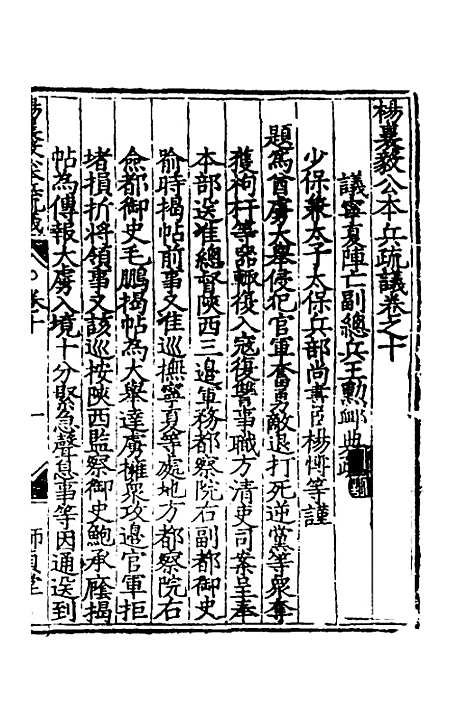 楊襄毅公本兵疏議卷之十
議寧夏陣亡副總兵王勳卹典疏
少保兼太子太保兵部尚書臣楊博等謹
題為酋虜大舉侵犯官軍奮勇敵退打死逆黨等衆奪
獲袍杆等器輙復入寇復讐事職方清吏司案呈奉
本部送准總督陝西三邊軍務都察院右副都御史
喻時揭帖前事又准巡撫寧夏等處地方都察院右
僉都御史毛鵬揭帖為大舉達虜擁衆攻邊官軍拒
堵損折將領事又該巡按陝西監察御史鮑承廕揭
帖為傳報大虜入境十分緊急聲息事等因通送到
卷十
一
師貞堂